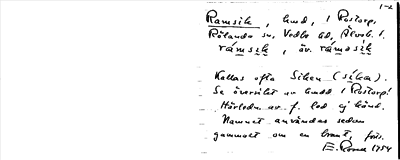 1-2
Ramsik, hmd, i Rostorp,
Rölanda sn, Vedbo hd, Älvsb. l.
rámsik, äv. rámasik
Kallas ofta Siken (síka).
Se översikt av hmd i Rostorp!
Härledn. av f. led ej känd.
Namnet användes sedan
gammalt om en brant,
E. 1954